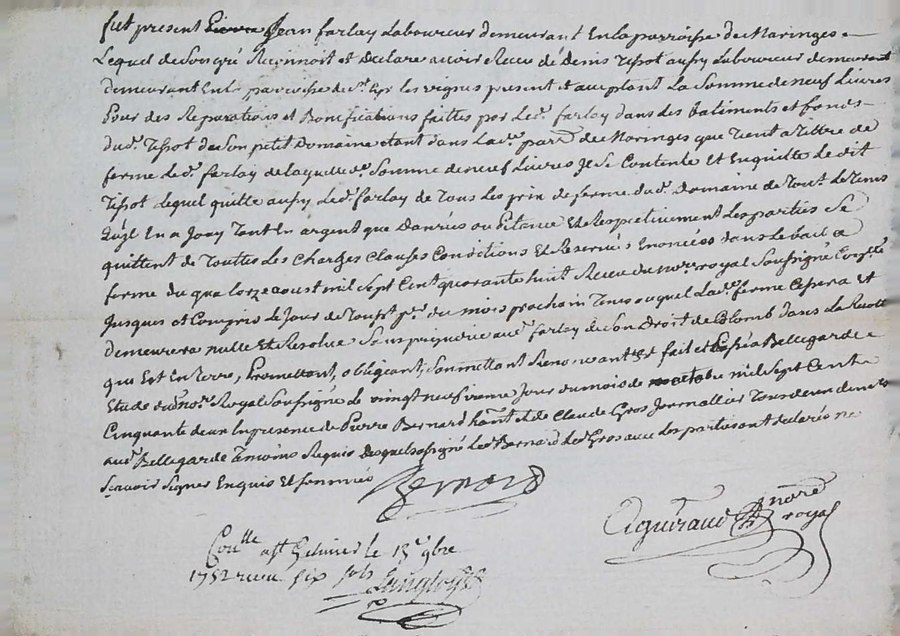 fut present Pierre Jean farlay Laboureur demeurant En la parroisse de Maringes
Lequel de Son gré Reconnoit et Declare avoir Receu de Denis Tissot aussy Laboureur demeurant
demeurant En la parroisse de St Cyr les vignes present et acceptant La Somme de neuf Livres
Pour des Reparations et Bonifications faittes par Led. farlay dans les batiments et fonds
dud. Tissot de Son petit Domaine etant dans lad. parse de Maringes que Tient a Tittre de
ferme Led. farlay de laquelle Somme de neuf Livres Je Se Contente Et En quitte Le dit
Tissot lequel quitte aussy Led. farlay de Tous Les prix de ferme dud. Domaine de Tout Le Tems
Quil En a Jouy Tant En argent que Danrés ou Pitance Et Respectivement Les parties Se
quittent de Touttes Les Charges Clauses Conditions Et Reserves Enoncées dans Le bail a
ferme du quatorze aoust mil Sept Cent quarante huit Receu du nore royal Soussigné
Jusques et Compris Le Jour de Toussts pr. du mois prochain Tems auquel Lad. ferme Cessera et
demeurera nulle Et Resolue Sans prejudice aud. farlay de Son Droit de Colomb dans la Recolte
qui Est En terre, Promettant, obligeant, Soumettant Renonçant fait et passé a Bellegarde
Etude dud. nore Royal Soussigné Le vingt neuf Jour du mois de octobre mil Sept Cent
Cinquante deux En presence de Pierre Bernard et de Claude Gros Journallier Tous deux demeurt
aud. Bellegarde Temoins Requis Lesquels ont signé Led. Bernard Led. Gros avec Les parties ont declaré ne
Scavoir Signer Enquis Et Sommés
Bernard
Aguiraud nore
royal
Conlle a St Galmier le 13e 9bre
1752 receu six sols
Langlois